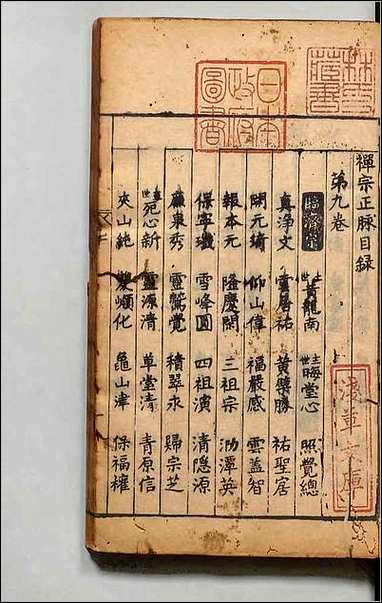 禪宗正脉目録
第九巻
臨濟宗
十一世黄龍南
十二世晦堂心
照覺總
真浄文
雲居祐
黄檗勝
祐聖居
開元琦
仰山偉
福嚴感
雲蓋智
報本元
隆慶閑
三祖宗
泐潭英
保寧璣
雪峰圓
四祖演
清隱源
廉泉秀
靈鷲覺
積翠永
歸宗芝
世死心新
靈源清
草堂清
青原信
夾山純
雙嶺化
龜山津
保福權
日本
政府
圖書
林氏
藏書
淺草文庫